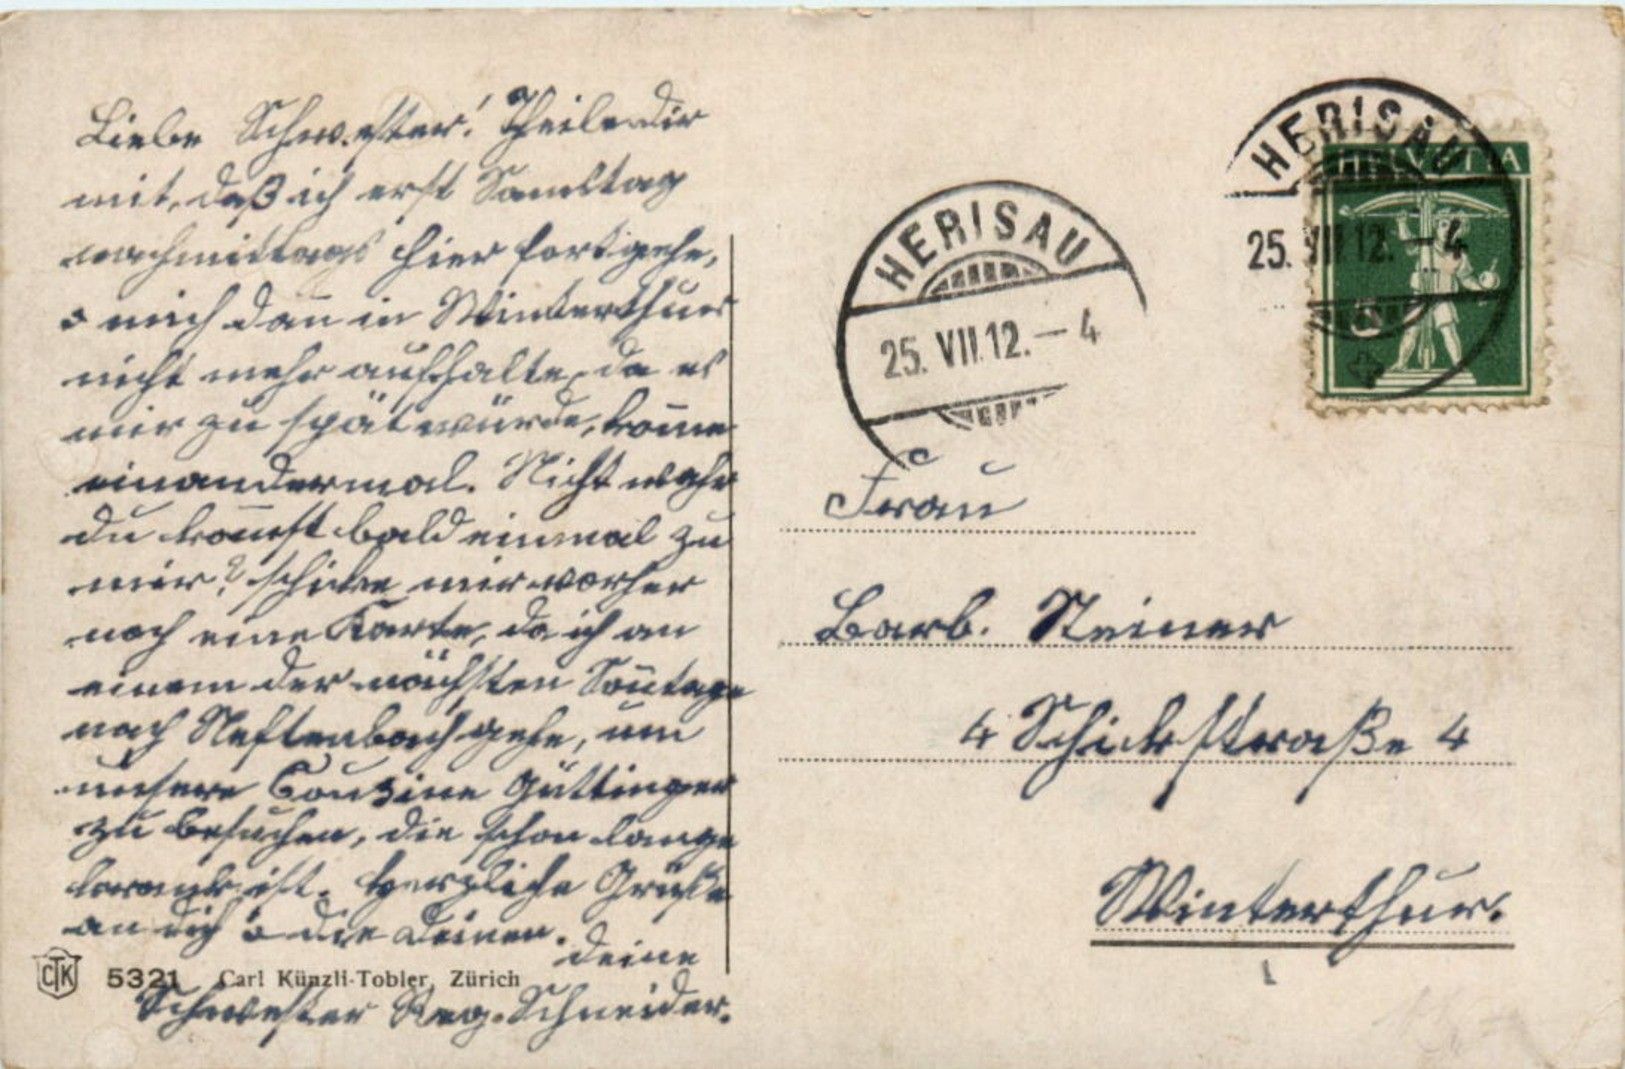 Liebe Schwester! Theile dir
mit, daß ich erst Samstag
nachmittags hier fortgehe,
u mich dann in Winterthur
nicht mehr aufhalte, da es
mir zu spät würde, komme
einandermal. Nicht wahr
du kommst bald einmal zu
mir? schicke mir vorher
noch eine Karte, da ich an
einem der nächsten Sonntage
nach Neftenbach gehe, um
unsere Cousine Güttinger
zu besuchen, die schon lange
krank ist. Herzliche Grüße
an dich u die Deinen.
Deine
Schwester Reg. Schneider.
CTK 5321 Carl Künzli-Tobler, Zürich
HERISAU
25. VII. 12. – 4
HERISAU
25. VII 12. – 4
HELVETIA
5
Frau
Barb. Steiner
4 Schickstraße 4
Winterthur.